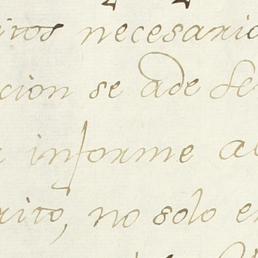 itos necesario
cion se ade se
informe a
rito, no solo e